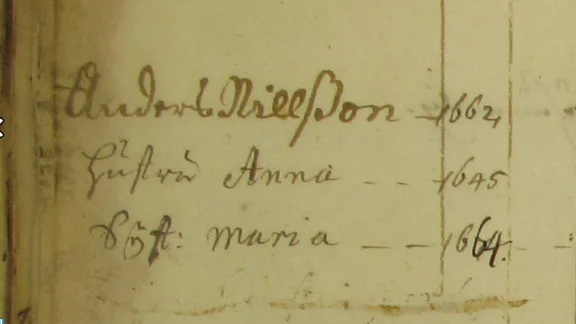 Anders Nillßon — 1662
hustru Anna - - 1645
Syst: maria - - 1664.